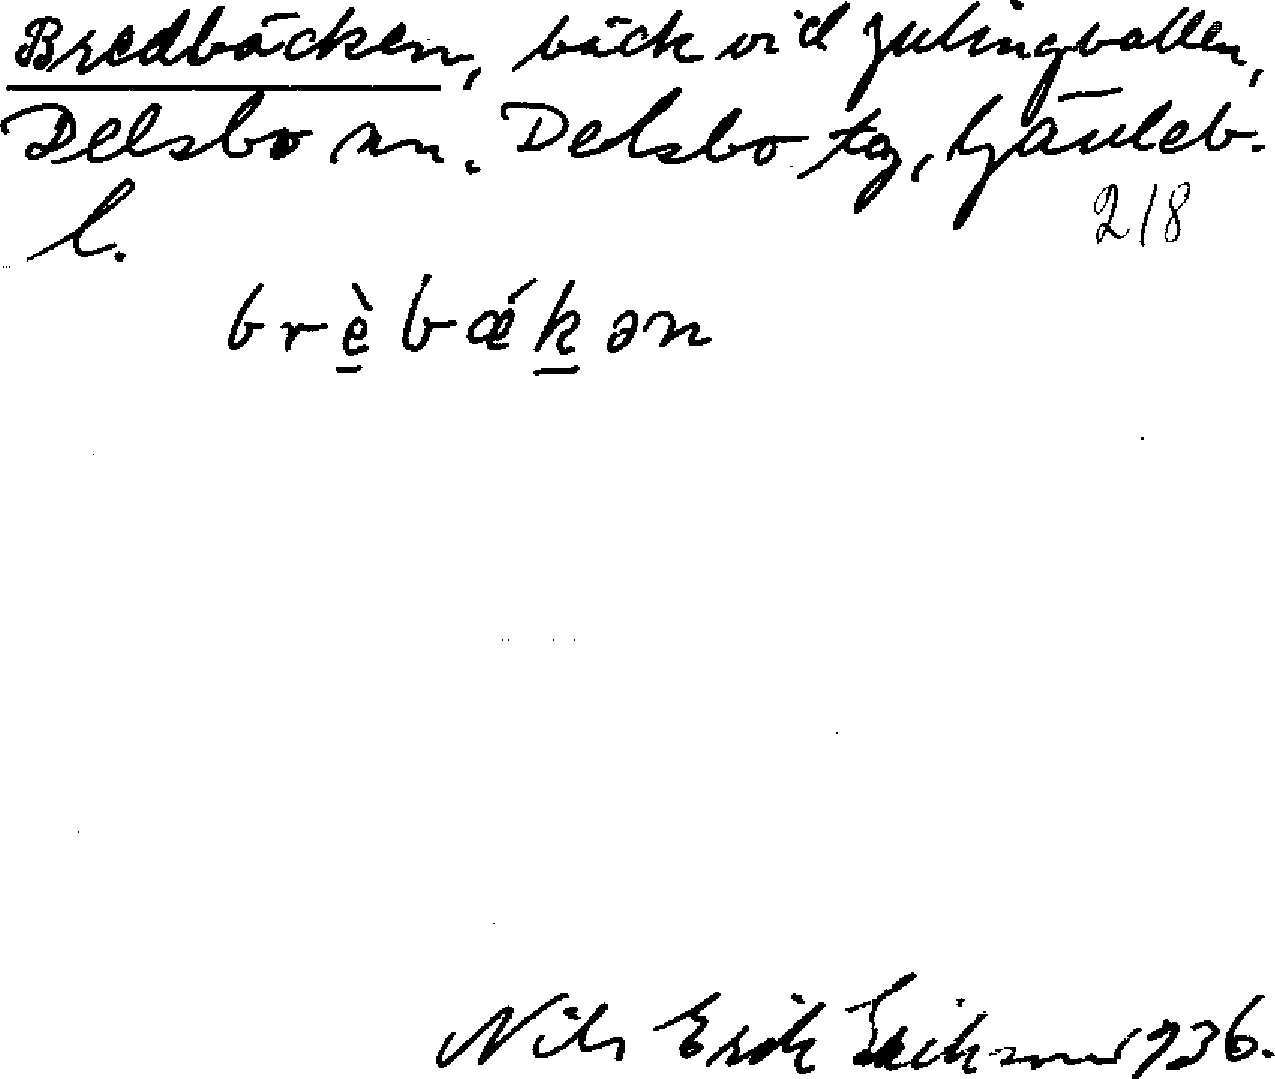 Bredbäcken, bäck vid Julingvallen,
Delsbo sn. Delsbo tg, Gävleb.
l.
218
brè̱bǽḵən
Nils Erik 1936.